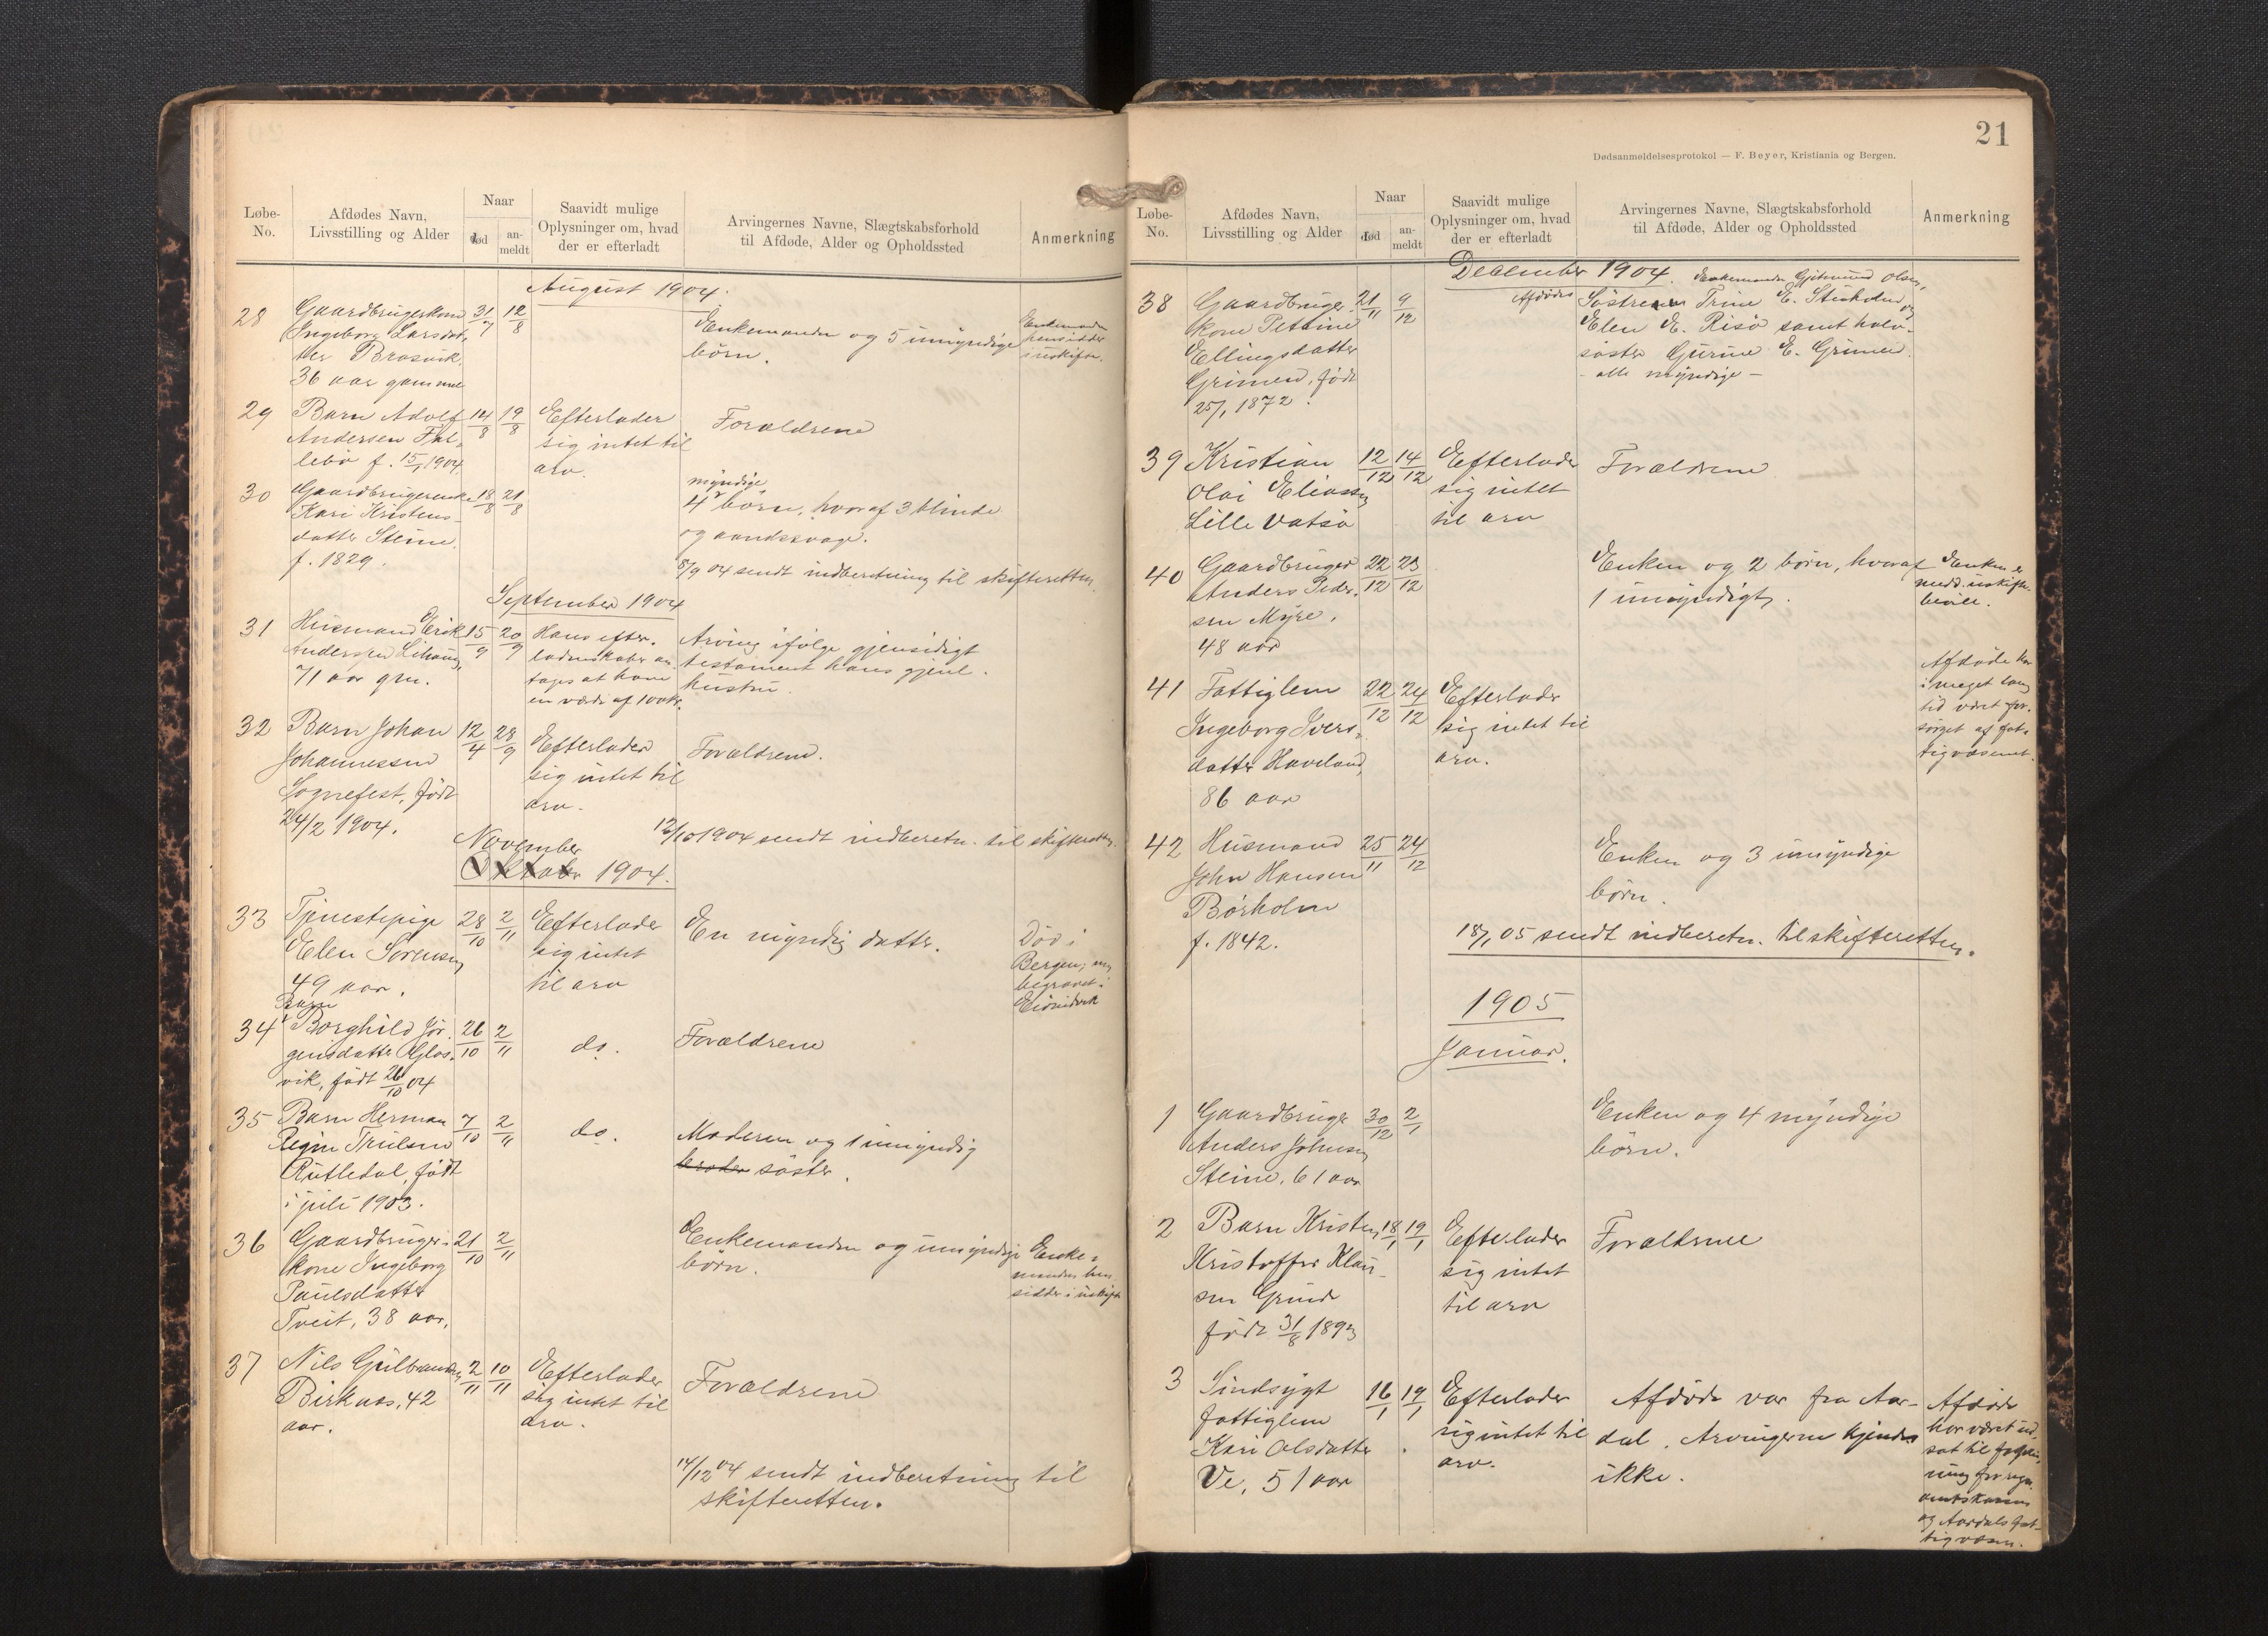 Løbe-
No.
Afdødes Navn,
Livsstilling og Alder
Naar
død
an-
meldt
Saavidt mulige
Oplysninger om, hvad
der er efterladt
Arvingernes Navne, Slægtskabsforhold
til Afdøde, Alder og Opholdssted
Anmerkning
August 1904.
28
Gaardbrugerkone
Ingeborg Larsdat-
ter Brosvik
36 aar gammel
31/7
12/8
Enkemanden og 5 umyndige
børn.
Enkemanden
hensidder
i uskifte.
29
Barn Adolf
Andersen Fal-
lebø f. 15/1 1904.
14/8
19/8
Efterlader
sig intet til
arv.
Forældrene
30
Gaardbrugerenke
Kari Kristens-
datter Steine.
f. 1829.
18/8
21/8
myndige
4 børn, hvoraf 3 blinde
og aandssvage.
8/9 04 sendt indberetning til skifteretten.
September 1904
31
Husmand Erik
Anderssen Lihaug,
71 aar gm.
15/9
20/9
Hans efter-
ladenskaber an-
tages at have
en værdi af 100 kr.
Arving ifølge gjensidigt
testament hans gjenl.
hustru.
32
Barn Johan
Johannessen
Sognefest, født
24/2 1904.
12/4
28/9
Efterlader
sig intet til
arv.
Forældrene.
12/10 1904 sendt indberetn. til skifteretten.
November
Oktober 1904.
33
Tjenestepige
Elen Sørensen
49 aar.
28/10
2/11
Efterlader
sig intet
til arv
En myndig datter.
Død i
Bergen; en
begravet i
Eivindvik
34
Barn
Borghild Jør-
gensdatter Glos-
vik, født 26/10 04
26/10
2/11
do.
Forældrene
35
Barn Herman
Regin Trulsen
Rutledal, født
i juli 1903.
7/10
2/11
do.
Moderen og 1 umyndig
broder søster.
36
Gaardbruger-
kone Ingeborg
Paulsdatter
Tveit, 38 aar,
21/10
2/11
Enkemanden og umyndige
børn.
Enke-
manden hen-
sidder i uskifte
37
Nils Gulbrandsen
Birknes, 42
aar.
2/11
10/11
Efterlader
sig intet til
arv.
Forældrene
14/12 04 sendt indberetning til
skifteretten.
21
Dødsanmeldelsesprotokol — F. Beyer, Kristiania og Bergen.
Løbe-
No.
Afdødes Navn,
Livsstilling og Alder
Naar
død
an-
meldt
Saavidt mulige
Oplysninger om, hvad
der er efterladt
Arvingernes Navne, Slægtskabsforhold
til Afdøde, Alder og Opholdssted
Anmerkning
December 1904.
38
Gaardbruger-
kone Petrine
Ellingsdatter
Grimen, født
25/1 1872.
21/11
9/12
Enkemanden Gjitmund Olsen,
afdødes Søstrene Trine E. Stusholmd og
Elen E. Risø samt halv-
søster Gurine E. Grimen.
- alle myndige -
39
Kristian
Olai Eliassen
Lille Vatsø
12/12
14/12
Efterlader
sig intet
til arv
Forældrene
40
Gaardbruger
Anders Peder-
sen Myre,
48 aar
22/12
23/12
Enken og 2 børn, hvoraf
1 umyndigt.
Enken er
medd. uskifte-
bevill.
41
Fattiglem
Ingeborg Ivers-
datter Haveland,
86 aar
22/12
24/12
Efterlader
sig intet til
arv.
Afdøde har
i meget lang
tid været for-
sørget af fat-
tigvæsenet.
42
Husmand
John Hansen
Børholm
f. 1842.
25/11
24/12
Enken og 3 umyndige
børn.
18/1 05 sendt indberetn. til skifteretten.
1905
Januar.
1
Gaardbruger
Anders Johnsen
Steine, 61 aar
30/12
2/1
Enken og 4 myndige
børn.
2
Barn Kristen
Kristoffer Klau-
sen Grinde
født 31/8 1893
18/1
19/1
Efterlader
sig intet
til arv
Forældrene
3
Sindsygt
fattiglem
Kari Olsdatter
Ve, 51 aar
16/1
19/1
Efterlader
sig intet til
arv.
Afdøde var fra Aar-
dal. Arvingerne kjendes
ikke.
Afdøde
har været ud-
sat til forplei-
ning for regn.
amtskassen
og Aardals fat-
tigvæsen.